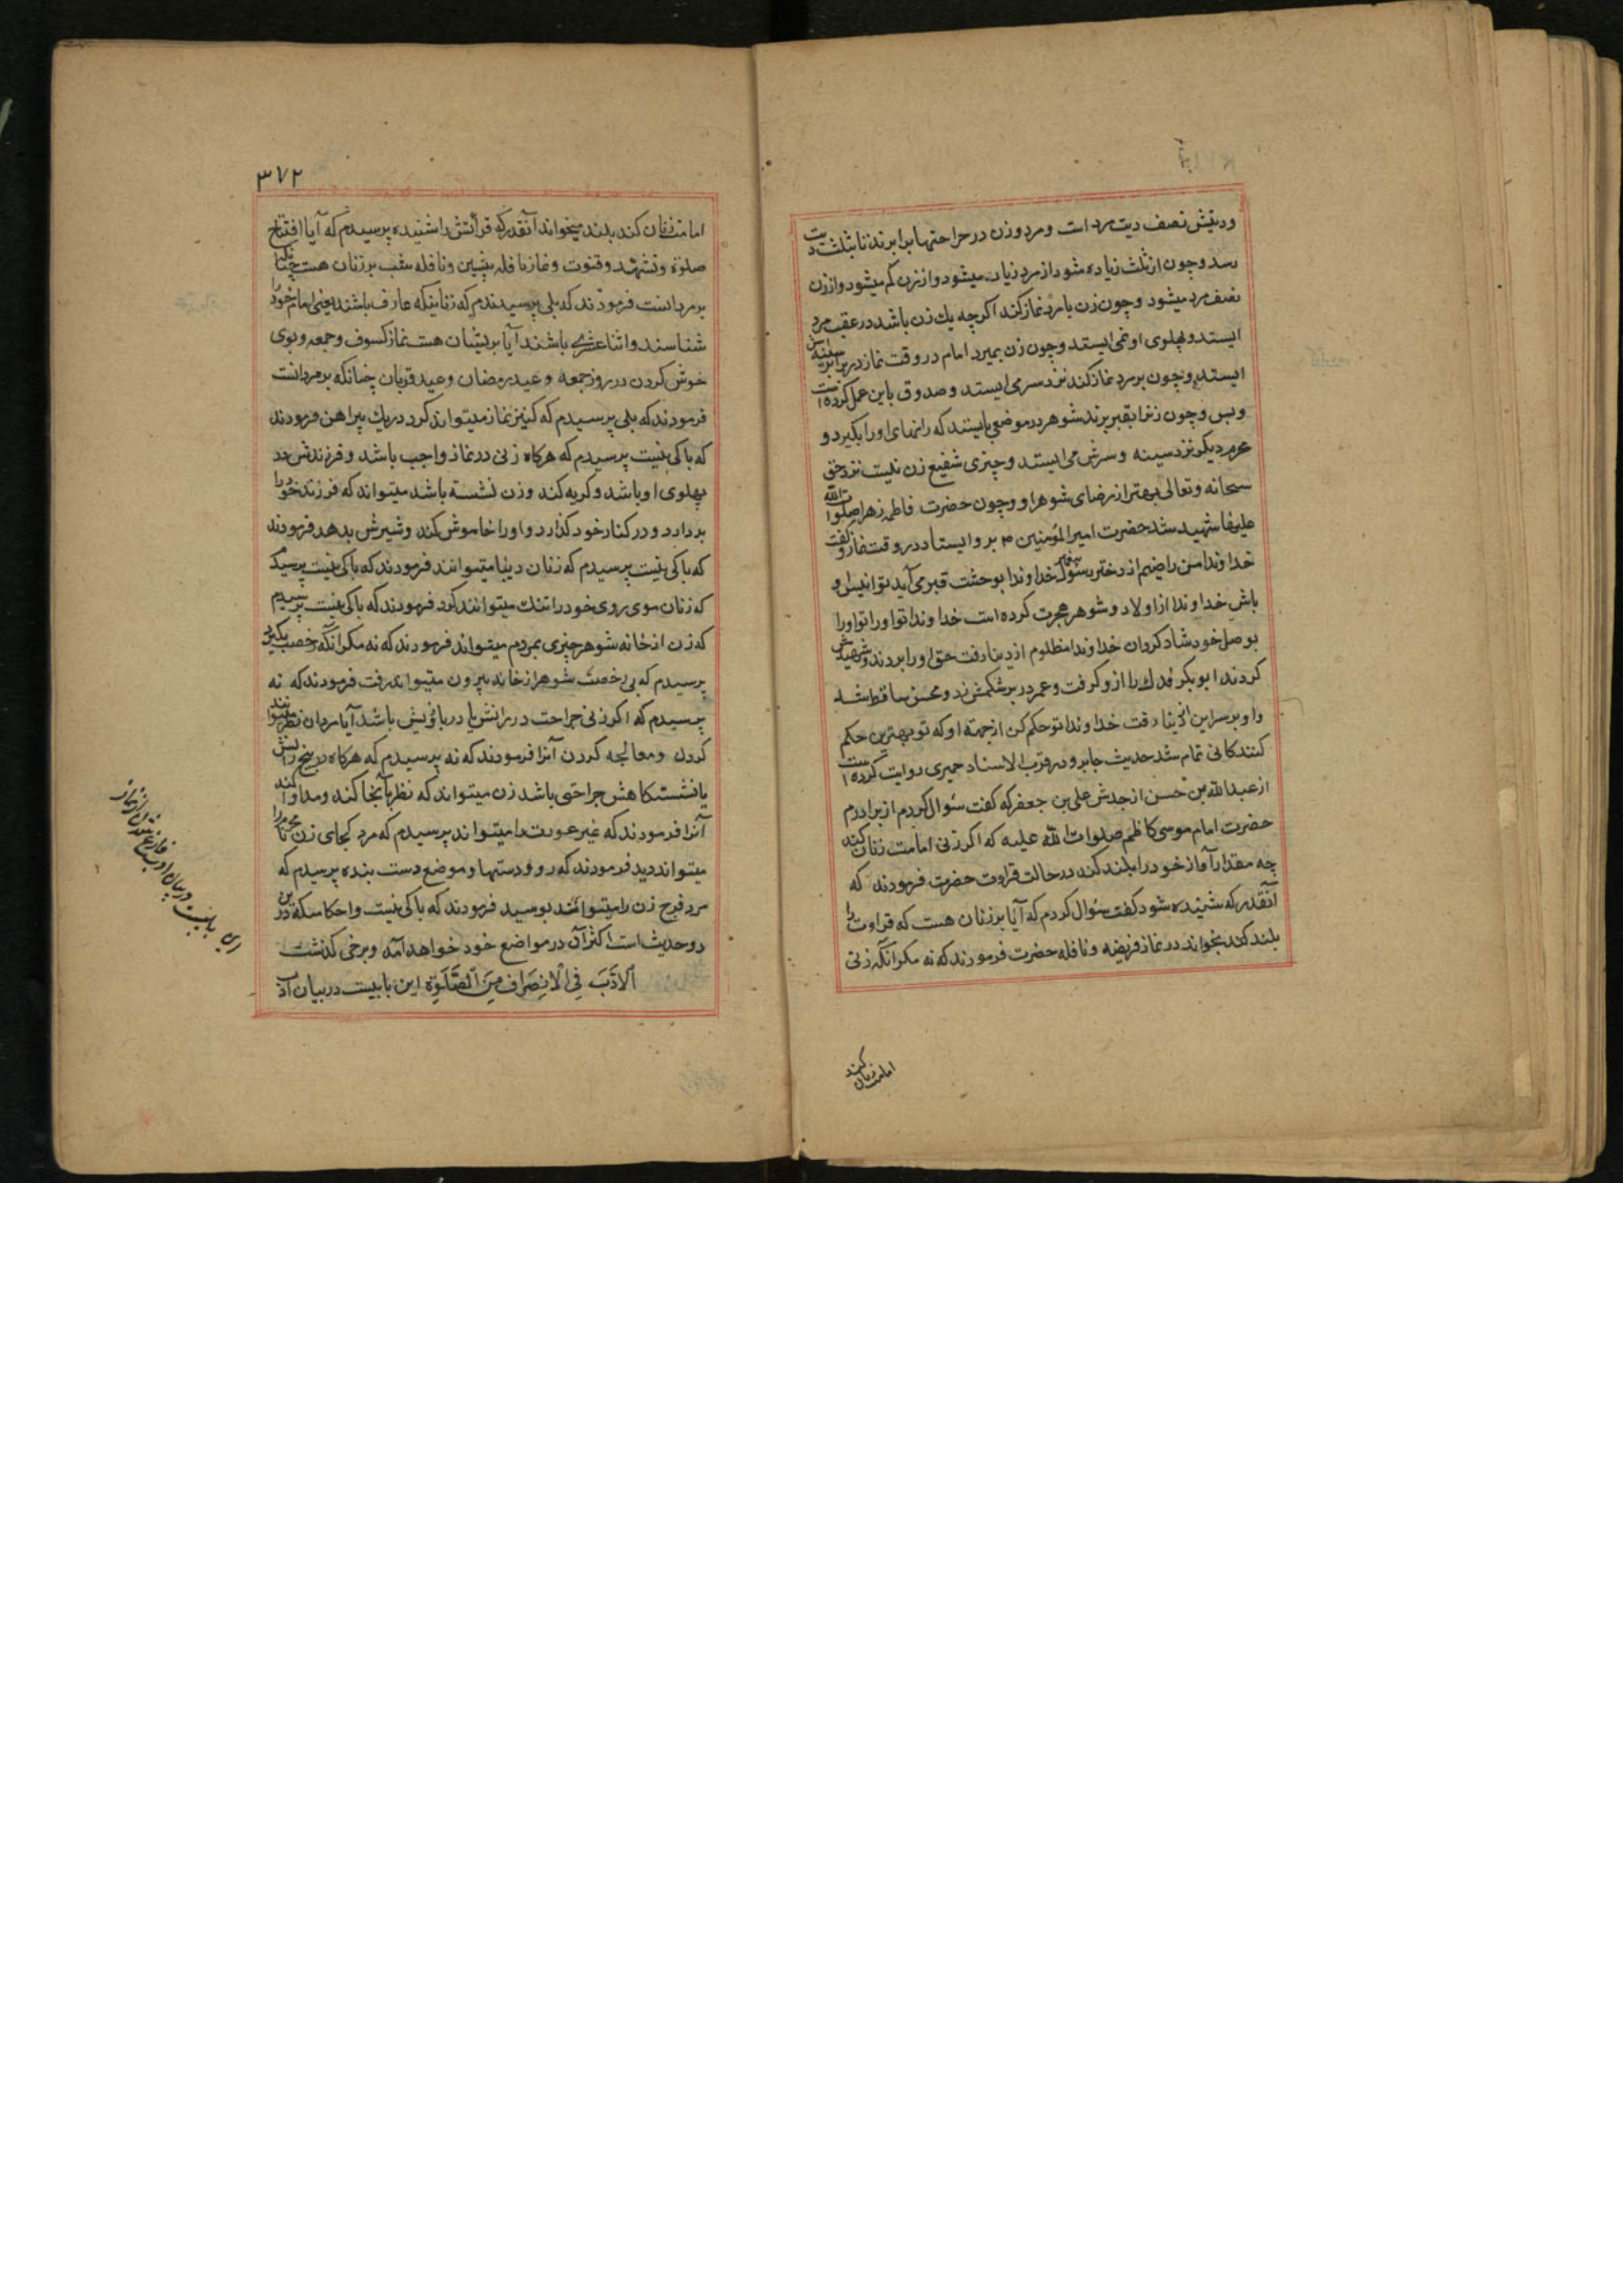 وديتش نصف ديت مرد است و مرد و زن در جراحتها برابرند تا بثلث ديت
رسد و چون از ثلث زياده شود از مرد زياد ميشود و از زن كم ميشود و از زن
نصف مرد ميشود و چون زن با مرد نماز كند اكر چه يك زن باشد در عقب مرد
ايستد و پهلوى او نمى ايستد و چون زن بميرد امام در وقت نماز در برابر سينه اش
ايستد و چون بر مرد نماز كند نزد سر مى ايستد و صدوق باين عمل كرده است
و بس و چون زنرا بقبر برند شوهر در موضعى بايستد كه رانهاى او را بكيرد و
محرم ديكر نزد سينه و سرش مى ايستد و چيزى شفيع زن نيست نزد حق
سبحانه و تعالى بهتر از رضاى شوهر او و چون حضرت فاطمه زهرا صلوات الله
عليها شهيد شد حضرت امير المؤمنين ۴ برو ايستاد در وقت نماز و كفت
خداوندا من راضيم از دختر رسول پيغمبر خداوندا بوحشت قبر مى آيد تو انيس او
باش خداوندا از اولاد و شوهر هجرت كرده است خداوندا تو او را تو او را
بوصل خود شاد كردان خداوندا مظلوم از دنيا رفت حق او را بردند و شهيدش
كردند ابوبكر فدك را ازو كرفت و عمر در بر شكمش زد و محسن ساقط شد
و او بر سر اين از دنيا رفت خداوندا تو حكم كن از جهة او كه تو بهترين حكم
كنندكانى تمام شد حديث جابر و در قرب الاسناد حميرى روايت كرده است
از عبدالله بن حسن از جدش على بن جعفر كه كفت سؤال كردم از برادرم
حضرت امام موسى كاظم صلوات الله عليه كه اكر زنى امامت زنان كند
چه مقدار آواز خود را بلند كند در حالت قراءت حضرت فرمودند كه
آنقدر كه شنيده شود كفت سؤال كردم كه آيا بر زنان هست كه قراءت را
بلند كند بخواند در نماز فريضه و نافله حضرت فرمودند كه نه مكر آنكه زنى
امامت زنان كند
٣٧٢
امامت زنان كند بلند ميخواند آنقدر كه قرائتش را شنيده پرسيدم كه آيا افتتاح
صلوة و تشهد و قنوت و نماز نافله پيشين و نافله شب بر زنان هست چنانكه
بر مردانست فرمودند كه بلى پرسيدم كه زنانيكه عارف باشند يعنى امام خود را
شناسند و اثنا عشرى باشند آيا بريشان هست نماز كسوف و جمعه و بوى
خوش كردن در روز جمعه و عيد رمضان و عيد قربان چنانكه بر مردانست
فرمودند كه بلى پرسيدم كه كنيز نماز ميتواند كرد در يك پيراهن فرمودند
كه باكى نيست پرسيدم كه هركاه زنى در نماز واجب باشد و فرزندش در
پهلوى او باشد و كريه كند و زن نشسته باشد ميتواند كه فرزند خود را
بر دارد و در كنار خود كذارد و او را خاموش كند و شيرش بدهد فرمودند
كه باكى نيست پرسيدم كه زنان ديبا ميتوانند فرمودند كه باكى نيست پرسيدم
كه زنان موى روى خود را تنك ميتوانند كرد فرمودند كه باكى نيست پرسيدم
كه زن از خانه شوهر چيزى بمردم ميتواند فرمودند كه نه مكر آنكه رخصت بكيرد
پرسيدم كه بى رخصت شوهر از خانه بيرون ميتواند رفت فرمودند كه نه
پرسيدم كه اكر زنى جراحت در رانش يا در بازويش باشد آيا مردان نظر ميتوانند
كردن و معالجه كردن آنرا فرمودند كه نه پرسيدم كه هركاه در بيخ رانش
يا نشستكاهش جراحتى باشد زن ميتواند كه نظر بآنجا كند و مداوا كند
آنرا فرمودند كه غير عورت را ميتواند پرسيدم كه مرد كجاى زن نامحرم را
ميتواند ديد فرمودند كه رو و دستها و موضع دست بنده پرسيدم كه
مرد فرج زن را ميتوانند بوسيد فرمودند كه باكى نيست و احكاميكه درين
دو حديث است اكثر آن در مواضع خود خواهد آمد و برخى كذشت
اَلْادَبَ فِى الْانْصِرَافِ مِنَ الصَّلَوةِ اين بابيست در بيان آداب
اين بابيست در بيان ادب